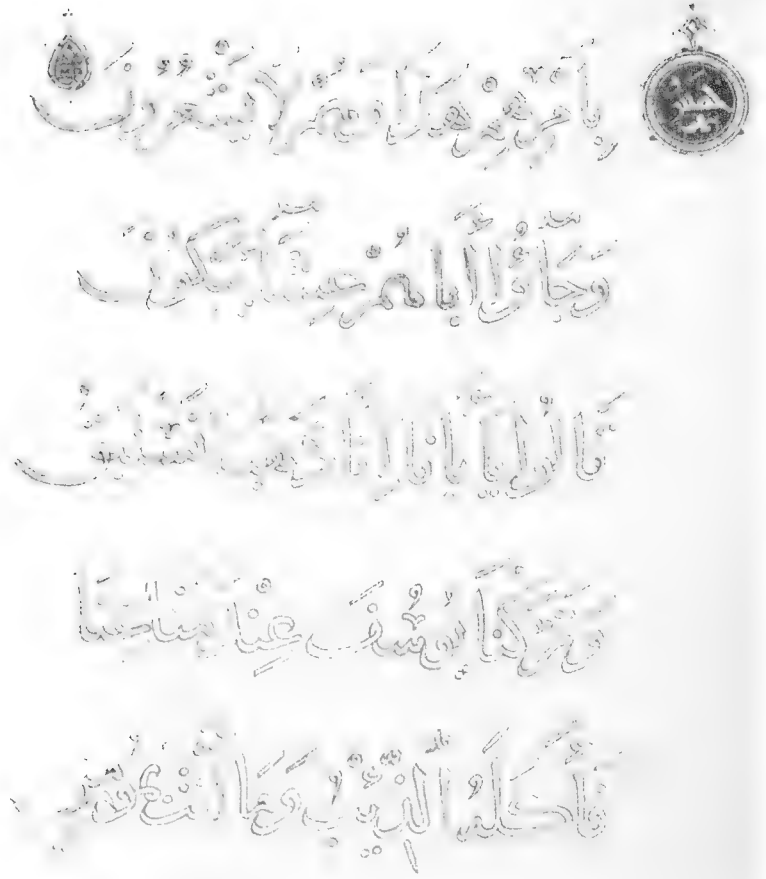 بِأَمْرِهِمْ هَذَا وَهُمْ لَا يَشْعُرُونَ
وَجَاؤُا أَبَاهُمْ عِشَاءً يَبْكُونَ
قَالُوا يَا أَبَانَا إِنَّا ذَهَبْنَا نَسْتَبِقُ
وَتَرَكْنَا يُوسُفَ عِنْدَ مَتَاعِنَا
فَأَكَلَهُ الذِّئْبُ وَمَا أَنْتَ بِمُؤْمِنٍ